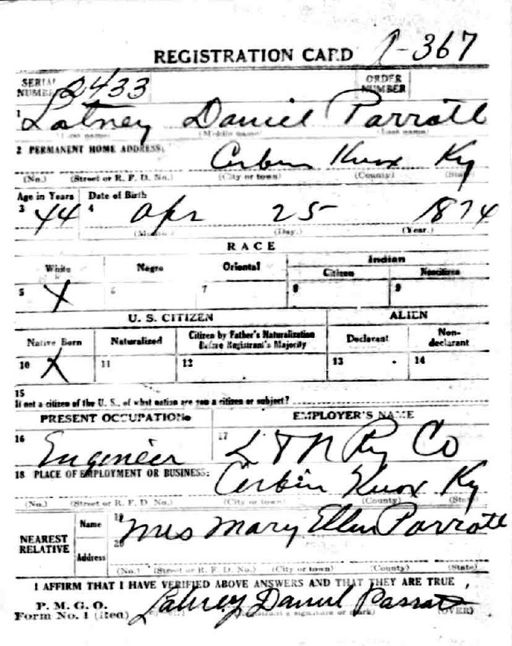 REGISTRATION CARD 1-367
SERIAL NUMBER 2433 ORDER NUMBER
1 Latney Daniel Parrott
(First name) (Middle name) (Last name)
2 PERMANENT HOME ADDRESS: Corbin Knox Ky
(No.) (Street or R. F. D. No.) (City or town) (County) (State)
Age in Years Date of Birth
3 44 4 Apr 25 1874
(Month.) (Day.) (Year.)
RACE
White Negro Oriental Indian
Citizen Noncitizen
5 X 6 7 8 9
U. S. CITIZEN ALIEN
Native Born Naturalized Citizen by Father's Naturalization Before Registrant's Majority Declarant Non-declarant
10 X 11 12 13 14
15
If not a citizen of the U. S., of what nation are you a citizen or subject?
PRESENT OCCUPATION EMPLOYER'S NAME
16 Engineer 17 L & N Ry Co
18 PLACE OF EMPLOYMENT OR BUSINESS: Corbin Knox Ky
(No.) (Street or R. F. D. No.) (City or town) (County) (State)
NEAREST RELATIVE Name 19 Mrs Mary Ellen Parrott
Address 20
(No.) (Street or R. F. D. No.) (City or town) (County) (State)
I AFFIRM THAT I HAVE VERIFIED ABOVE ANSWERS AND THAT THEY ARE TRUE
P. M. G. O.
Form No. 1 (Red) Latney Daniel Parrott
(Registrant's signature or mark) (OVER)